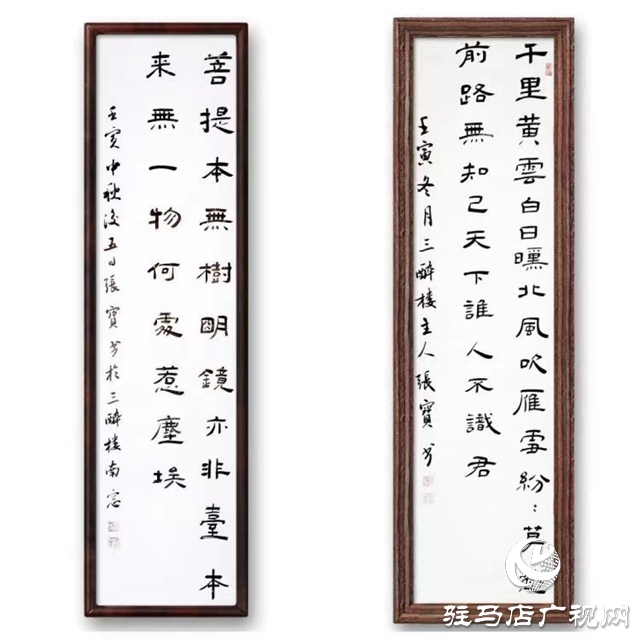 菩提本無樹明鏡亦非臺本
来無一物何處惹塵埃
壬寅中秋後五日張寶書於三醉楼南窓
千里黄雲白日曛北風吹雁雪紛:莫
前路無知己天下誰人不識君
壬寅冬月三醉楼主人張寶書
驻马店广视网